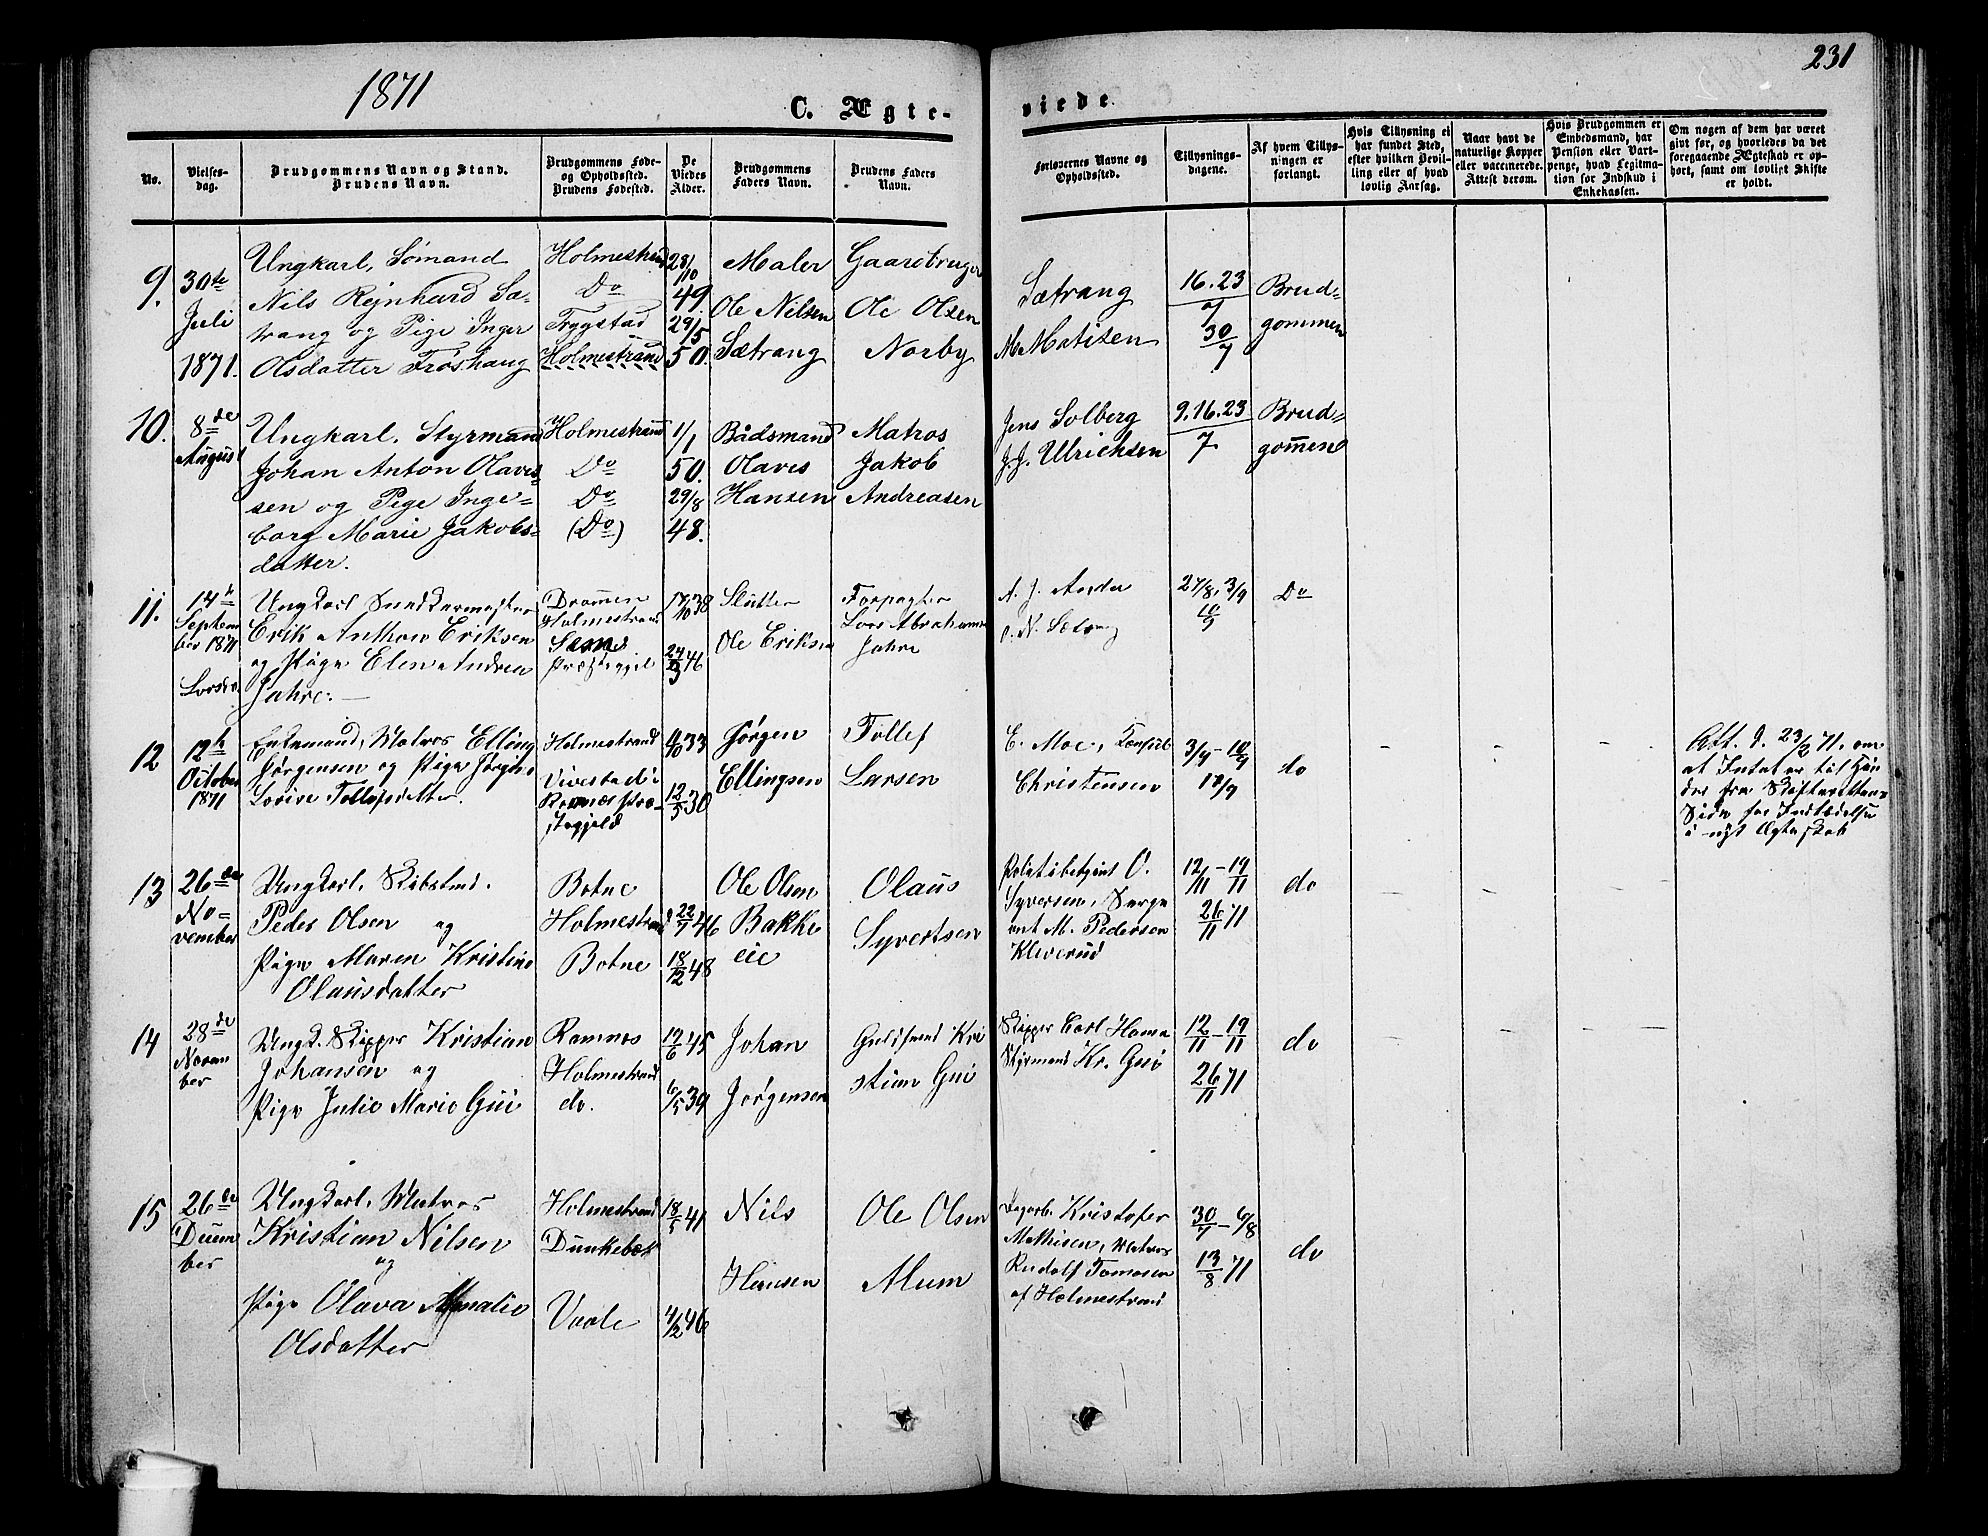 1871
231
C. Ægte-
viede
No.
Vielses-
dag.
Brudgommens Navn og Stand.
Brudens Navn.
Brudgommens Føde-
og Opholdssted.
Brudens Fødested.
De
Viedes
Alder.
Brudgommens
Faders Navn.
Brudens Faders
Navn.
Forlovernes Navne og
Opholdssted.
Tillysnings-
dagene.
Af hvem Tillys-
ningen er
forlangt.
Hvis Tillysning ei
har fundet Sted,
efter hvilken Bevil-
ling eller af hvad
lovlig Aarsag.
Naar havt de
naturlige Kopper
eller vaccinerede.
Attest derom.
Hvis Brudgommen er
Embedsmand, har
Pension eller Vart-
penge, hvad Legitima-
tion for Indskud i
Enkekassen.
Om nogen af dem har været
gift før, og hvorledes da det
foregaaende Ægteskab er op-
hørt, samt om lovligt Skifte
er holdt.
9.
30te
Juli
1871.
Ungkarl, Sømand
Nils Rejnhard Sæ-
trang og Pige Inger
Olsdatter Frøshaug
Holmestrand
Do
Trygstad
Holmestrand
28/10
49.
29/5
50.
Maler
Ole Nilsen
Sætrang
Gaardbruger
Ole Olsen
Norby
Sætrang
M. Matisen
16. 23
7
30/7
Brud=
gommen
10.
8de
August
Ungkarl, Styrmand
Johan Anton Olaves-
sen og Pige Inge=
borg Marie Jakobs=
datter.
Holmestrand
Do
Do
(Do)
1/1
50.
29/8
48.
Bådsmand
Olaves
Hansen
Matros
Jakob
Andreasen
Jens Solberg
J. J. Ulrichsen
9. 16. 23
7
Brud=
gommen
11.
14de
Septem
ber 1871
Ungkarl Snedkermester
Erik Anthon Eriksen
og Pige Elen Andrea
Jahre.
Drammen
Holmestrand
Sems
Præstegjel
17/10 38
24/3 46
Slutter
Ole Eriksen
Forpagter
Lars Abrahamsen
Jahre
27/8. 3/9
10/9
Do
12
12te
October
1871
Enkemand, Matros Elling
Jørgensen og Pige Jørgine
Lovise Tollefsdatter.
Holmestrand
Vivestad i
Ramnes Præ-
stegjeld
33
12/5 30
Jørgen
Ellingsen
Tollef
Larsen
E. Moe, Konsul
Christensen
3/9 - 10/9
17/9
do
Att. d. 23/2 71, om
at Intet er til Hin
der fra Skifterettens
Side for Indtrædelse
i nyt Ægteskab
13
26de
No=
vember
Ungkarl, Skibstmd.
Peder Olsen og
Pige Maren Kristine
Olausdatter
Botne
Holmestrand
Botne
22/7 46
18/12 48
Ole Olsen
Bakke
eie
Olaus
Syvertsen
Politibetjent O.
Syversen, Serge
ant M. Pedersen
Kleverud
12/11 - 19/11
26/11 71
do
14
28de
Novem
ber
Ungk. Skipper Kristian
Johansen og
Pige Julie Marie Gui
Ramnes
Holmestrand
do.
17/6 45
6/5 39
Johan
Jørgensen
Guldsmed Kri
stian Gui
Skipper Carl Hama
Styrmand Kr. Gui
12/11 - 19/11
26/11 71
do
15
26de
Decem
ber
Ungkarl, Matros
Kristian Nilsen
og
Pige Olava Amalie
Olsdatter
Holmestrand
Dunkebæk
Vaale
18/5 41
4/12 46
Nils
Hansen
Ole Olsen
Alum
Dagarb. Kristofer
Mathisen, Matros
Rudolf Tomasen
af Holmestrand
30/7 - 6/8
13/8 71
do